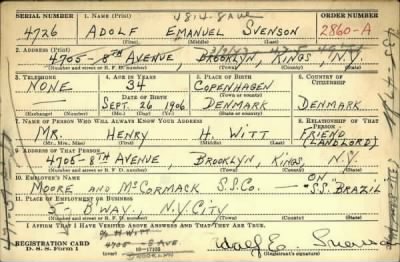 SERIAL NUMBER 1. NAME (Print) ORDER NUMBER
4726 ADOLF EMANUEL SVENSON 2860-A
(First) (Middle) (Last)
2. ADDRESS (Print)
4705-8TH AVENUE, BROOKLYN, KINGS, N.Y.
(Number and street or R. F. D. number) (Town) (County) (State)
3. TELEPHONE 4. AGE IN YEARS 5. PLACE OF BIRTH 6. COUNTRY OF CITIZENSHIP
NONE 34 COPENHAGEN
DATE OF BIRTH (Town or county)
— SEPT. 26 1906 DENMARK DENMARK
(Exchange) (Number) (Mo.) (Day) (Yr.) (State or country)
7. NAME OF PERSON WHO WILL ALWAYS KNOW YOUR ADDRESS 8. RELATIONSHIP OF THAT PERSON
MR. HENRY H. WITT FRIEND
(Mr., Mrs., Miss) (First) (Middle) (Last) (LANDLORD)
9. ADDRESS OF THAT PERSON
4705-8TH AVENUE BROOKLYN, KINGS, N.Y.
(Number and street or R. F. D. number) (Town) (County) (State)
10. EMPLOYER'S NAME ON
MOORE AND McCORMACK S.S.CO. — "S.S. BRAZIL
11. PLACE OF EMPLOYMENT OR BUSINESS
5 BWAY. N.Y.CITY
(Number and street or R. F. D. number) (Town) (County) (State)
I AFFIRM THAT I HAVE VERIFIED ABOVE ANSWERS AND THAT THEY ARE TRUE.
H WITT
REGISTRATION CARD 4705 8 AVE
D. S. S. Form 1 BROOKLYN